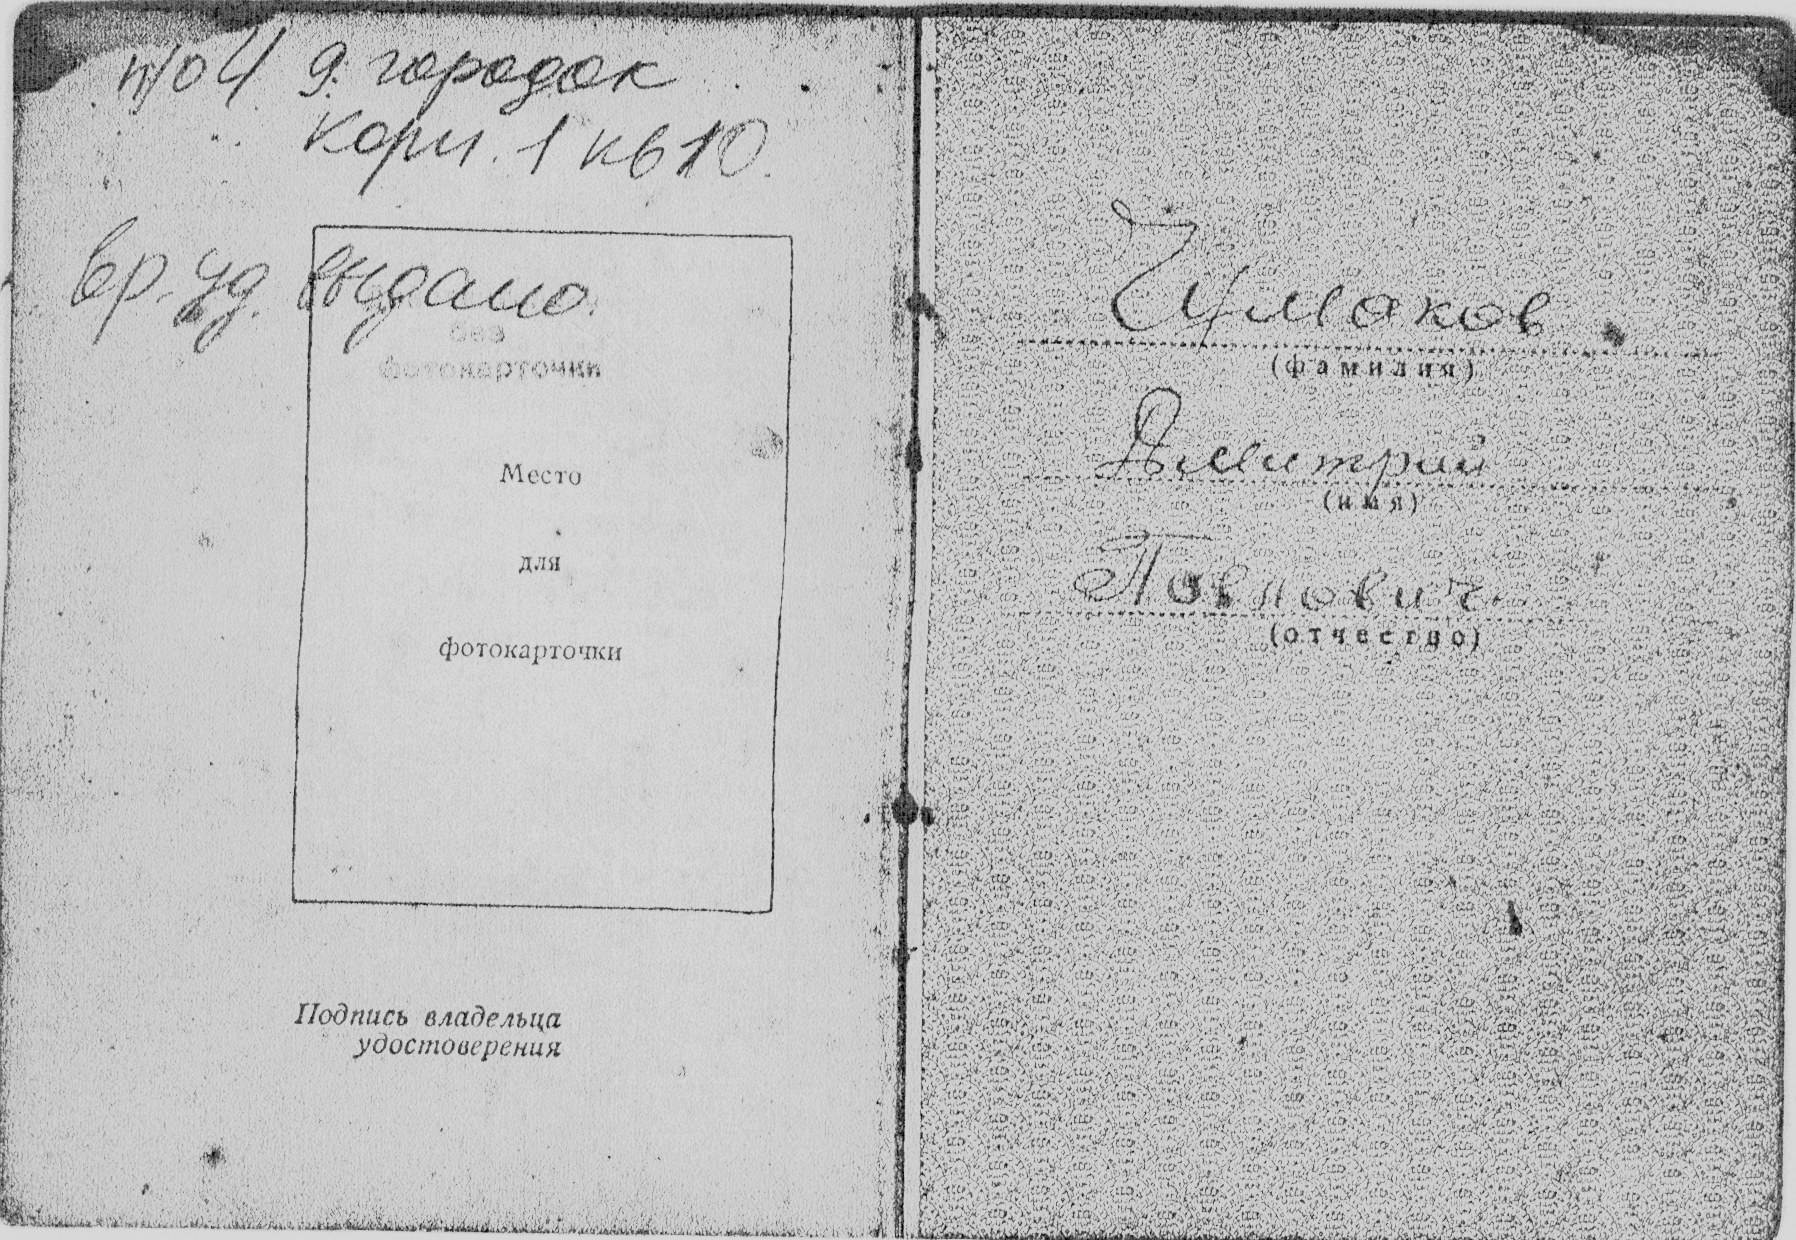 п/о 4 д. городок
корп. 1 кв 10.
вр. уд. выдано.
без
фотокарточки
Место
для
фотокарточки
Подпись владельца
удостоверения
Чумаков
(фамилия)
Дмитрий
(имя)
Павлович
(отчество)